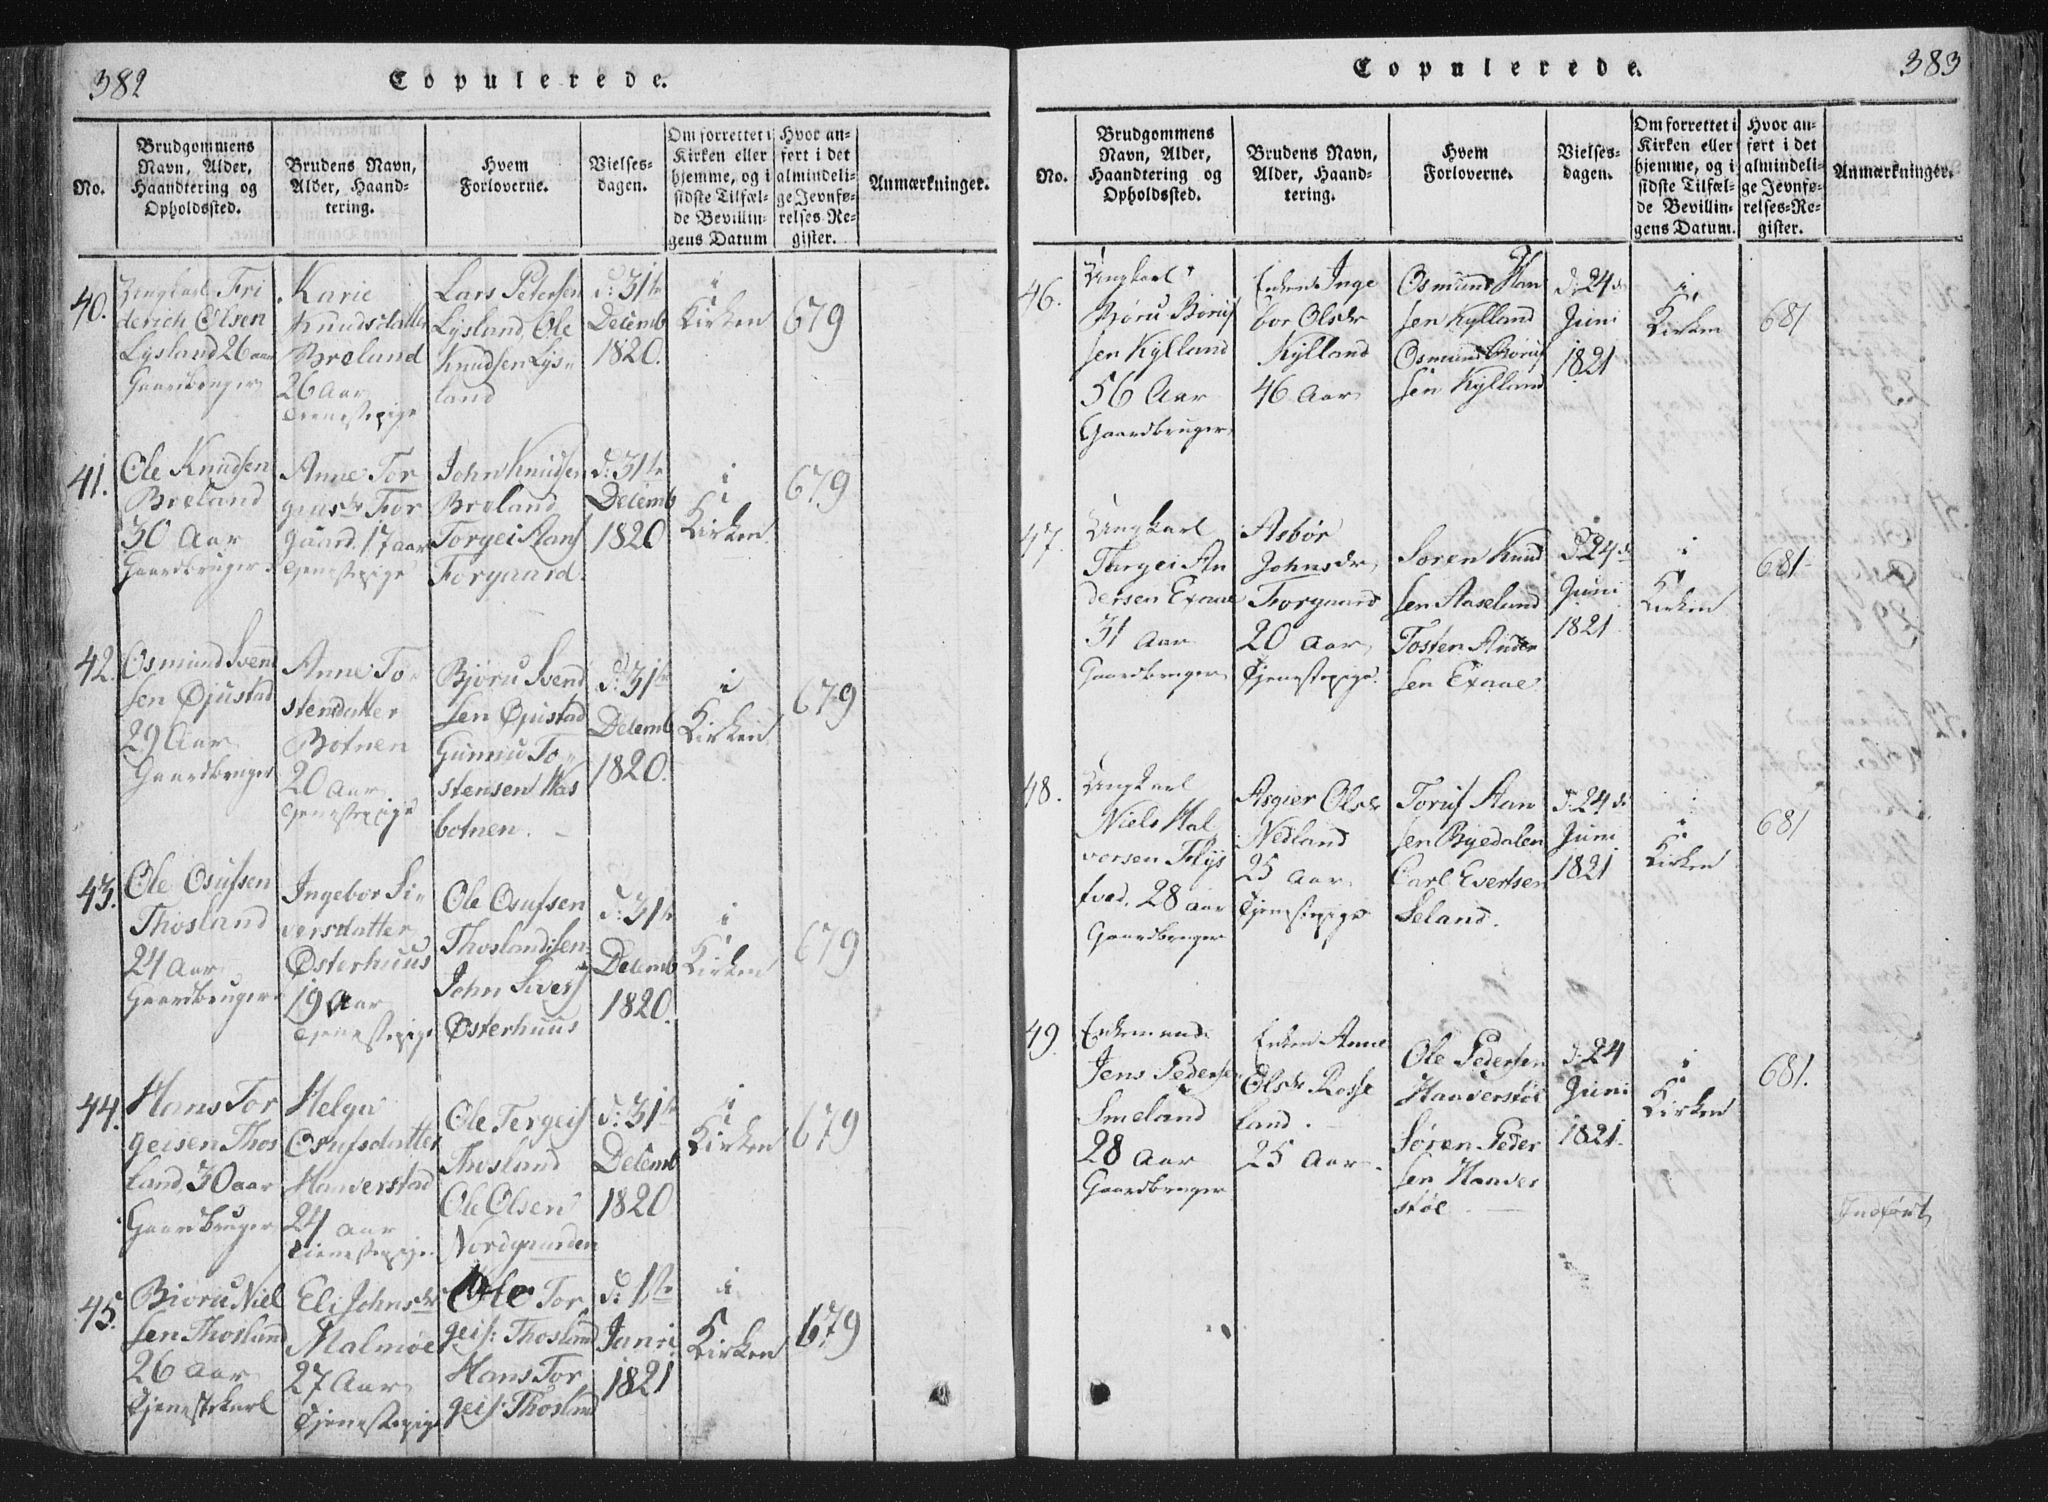 382
Copulerede.
No.
Brudgommens
Navn, Alder,
Haandtering og
Opholdssted.
Brudens Navn,
Alder, Haand-
tering.
Hvem
Forloverne.
Vielses-
dagen.
Om forrettet i
Kirken eller
hjemme, og i
sidste Tilfæl-
de Bevillin-
gens Datum
Hvor an-
ført i det
almindeli-
ge Jevnfø-
relses-Re-
gister.
Anmærkninger.
40.
Ungkarl Fri
derich Olsen
Lÿsland 26 aar
Gaardbruger
Karie
Knudsdatter
Breland
26 Aar
Tjenestepige
Lars Petersen
Lÿsland, Ole
Knudsen Lÿs-
land
d: 31te
Decemb
1820.
i
Kirken
679
41.
Ole Knudsen
Breland
30 Aar
Gaardbruger
Anne Tor
geusdr Tor
gaard. 17 aar
Tjenestepige
John Knudsen
Breland
Torgei Hans
Torgaard
d: 31te
Decemb
1820
i
Kirken
679
42.
Osmund Svend
sen Øjustad
29 Aar
Gaardbruger
Anne To-
stensdatter
Botnen
20 Aar
Tjenestepige
Bjøru Svend
sen Øjustad
Gunnu To-
stensen Aas
botnen.
d: 31te
Decemb
1820.
i
Kirken
679
43.
Ole Osufsen
Thosland
24 Aar
Gaardbruger
Ingebor Si-
versdatter
Østerhuus
19 Aar
Tjenestepige
Ole Osufsen
Thoslandsen
John Sivers
Østerhuus
d: 31te
Decemb
1820.
i
Kirken
679
44.
Hans Tor
geisen Thos
land, 30 aar
Gaardbruger
Helga
Osufsdatter
Haaverstad
24 aar
Tjenestepige
Ole Tergeis
Thosland
Ole Olsen
Nordgaarden
d: 31te
Decemb
1820
i
Kirken
679
45.
Bioru Niel
sen Thosland
26 Aar
Tjenestekarl
Eli Johnsdr
Malmøe
27 Aar
Tjenestepige
Ole Tor
geis: Thosland
Hans Tor
geis: Thosland
d: 1te
Janri
1821
i
Kirken
679
383
Copulerede.
No.
Brudgommens
Navn, Alder,
Haandtering og
Opholdssted.
Brudens Navn,
Alder, Haand-
tering.
Hvem
Forloverne.
Vielses-
dagen.
Om forrettet i
Kirken eller
hjemme, og i
sidste Tilfæl-
de Bevillin-
gens Datum.
Hvor an-
ført i det
almindeli-
ge Jevnfø-
relses-Re-
gister.
Anmærkninger.
46.
Ungkarl
Børu Børuf
sen Kylland
56 Aar
Gaardbruger
Enken Inge
bor Olsdr
Kÿlland
46 Aar
Osmund Han
sen Kylland
Osmund Børuf
sen Kylland
d: 24de
Juni
1821
i
Kirken
681
47.
Ungkarl
Thrgei An
dersen Exaae
31 Aar
Gaardbruger
Asbør
Johnsdr
Torgaard
20 Aar
Tjenestepige.
Søren Knud
sen Aaseland
Tosten Ander
sen Exaae
d: 24de
Juni
1821
i
Kirken
681
48.
Ungkarl
Niels Hal
vorsen Flÿs
tved. 28 aar
Gaardbruger
Asgier Olsdr
Nedland
25 aar
Tjenestepige
Toruf Han
sen Byedalen
Carl Evertsen
Seland.
d: 24de
Juni
1821
i
Kirken
681
49.
Enkemand
Jens Pedersen
Smeland
28 Aar
Gaardbruger
Enken Anne
Olsdr Rosse
land.
25 Aar
Ole Pedersen
Haaverstøl
Søren Peder
sen Haaver
støl
d: 24
Juni
1821
i
Kirken
681.
Indført